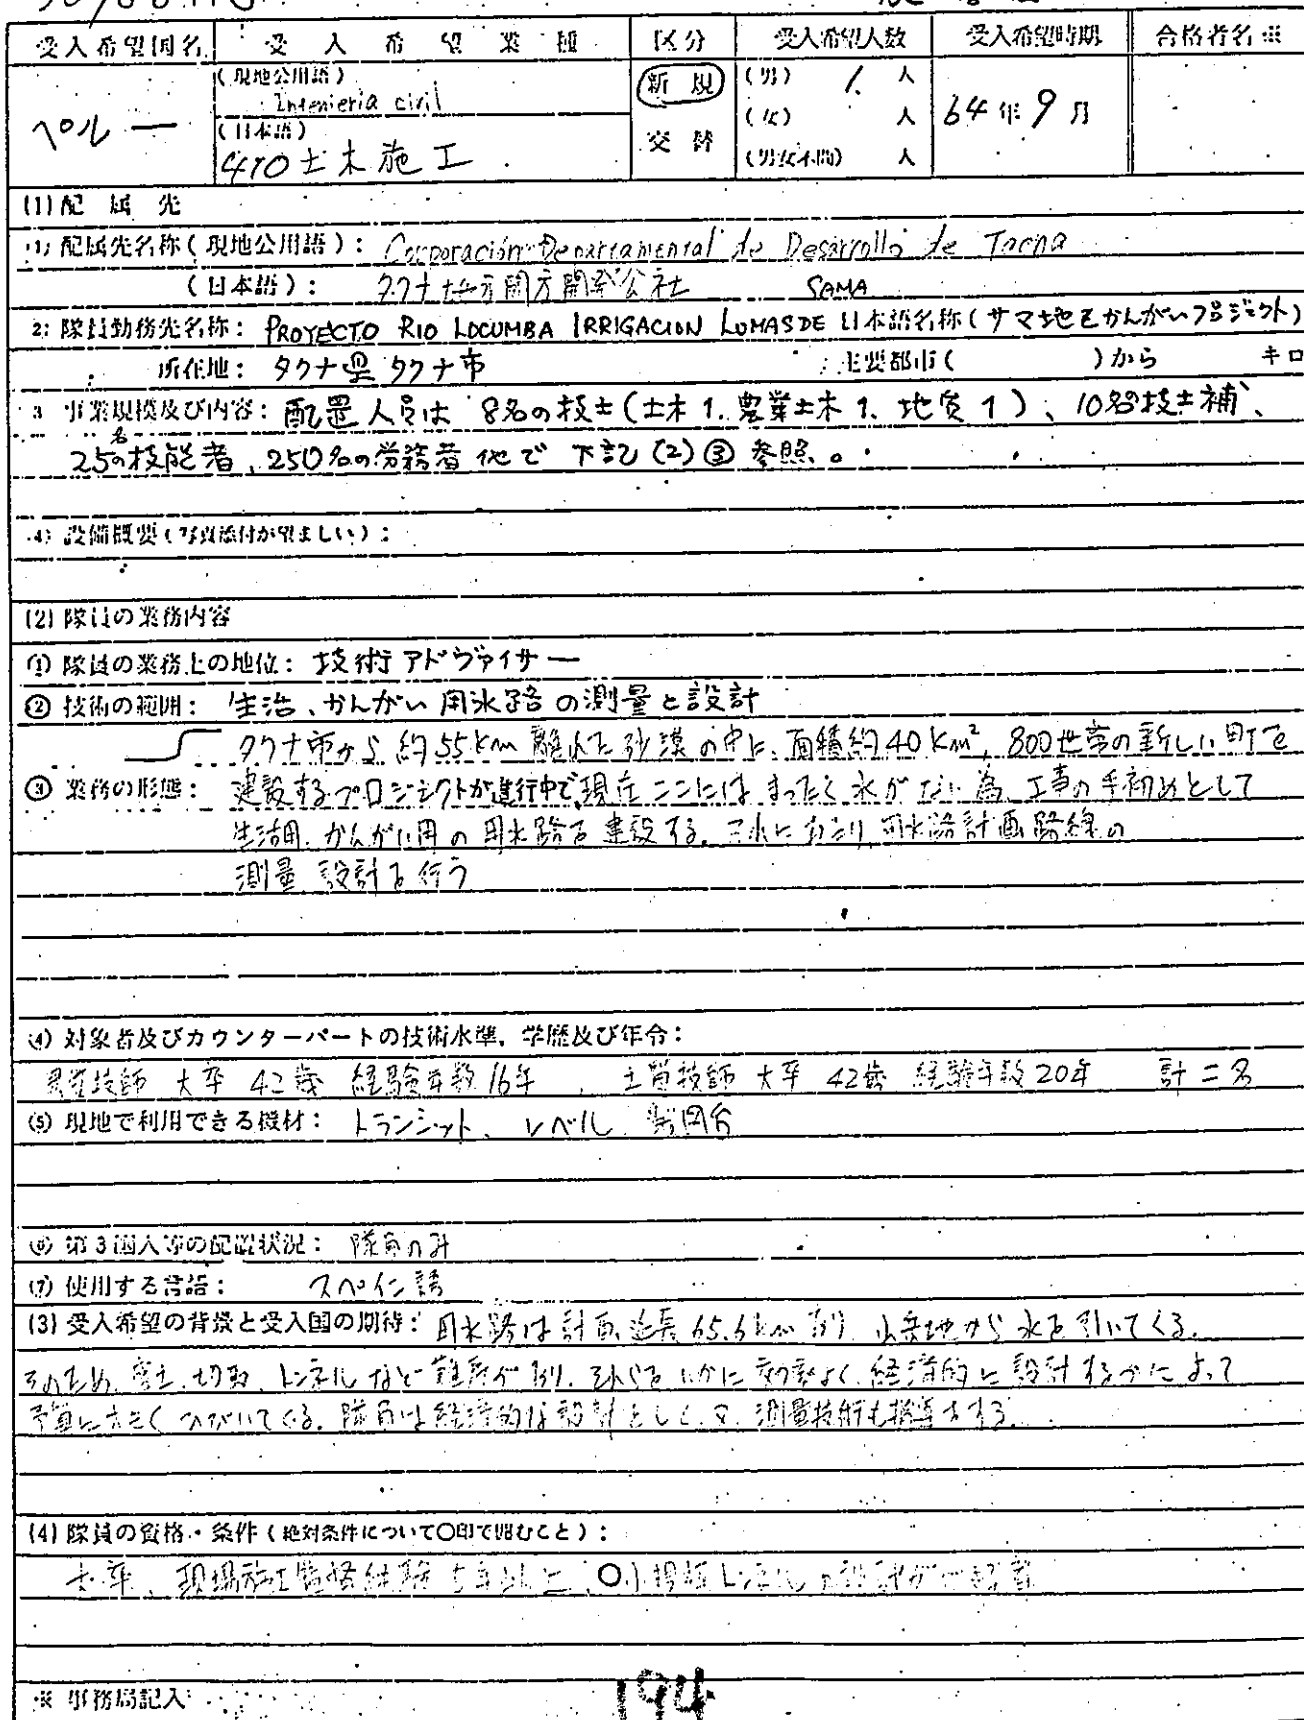 受入希望国名 受入希望業種 区分 受入希望人数 受入希望時期 合格者名※
ペルー
(現地公用語)
Intenieria civil
(日本語)
470 土木施工
新規
交替
(男) 1. 人
(女) 人
(男女不問) 人
64年9月
(1)配属先
(1) 配属先名称(現地公用語): Corporación Departamental de Desarrollo de Tacna
(日本語): タクナ地方開発公社
SAMA
2) 隊員勤務先名称: PROYECTO RIO LOCUMBA IRRIGACION LOMAS DE 日本語名称(サマ地区かんがいプロジェクト)
所在地: タクナ県タクナ市 主要都市( )から キロ
3 事業規模及び内容: 配置人員は 8名の技士(土木1. 農業土木1. 地質1)、10名技士補、
25名の技能者、250名の労務者他で 下記(2)③参照。
4) 設備概要(写真添付が望ましい):
(2) 隊員の業務内容
① 隊員の業務上の地位: 技術アドヴァイサー
② 技術の範囲: 生活、かんがい用水路の測量と設計
タクナ市から約55km離れた砂漠の中に、面積約40km², 800世帯の新しい町を
③ 業務の形態: 建設するプロジェクトが進行中で、現在ここにはまったく水がない為、工事の手初めとして
生活用、かんがい用の用水路を建設する。これにあたり、用水路計画路線の
測量 設計を行う
(4) 対象者及びカウンターパートの技術水準, 学歴及び年令:
農業技師 大卒 42歳 経験年数16年 , 土質技師 大卒 42歳 経験年数20年 計二名
(5) 現地で利用できる機材: トランシット、レベル
(6) 第3国人等の配置状況: 隊員のみ
(7) 使用する言語: スペイン語
(3) 受入希望の背景と受入国の期待: 用水路は計画延長65.6kmあり、山岳地から水を引いてくる。
そのため、盛土、切取、トンネルなど難所があり、それらをいかに効率よく、経済的に設計するかによって
予算に大きくひびいてくる。隊員は経済的な設計をし、又、測量技術も指導する。
(4) 隊員の資格・条件(絶対条件について○印で囲むこと):
大卒、現場施工監督経験5年以上、○小規模トンネルの設計
※ 事務局記入
194